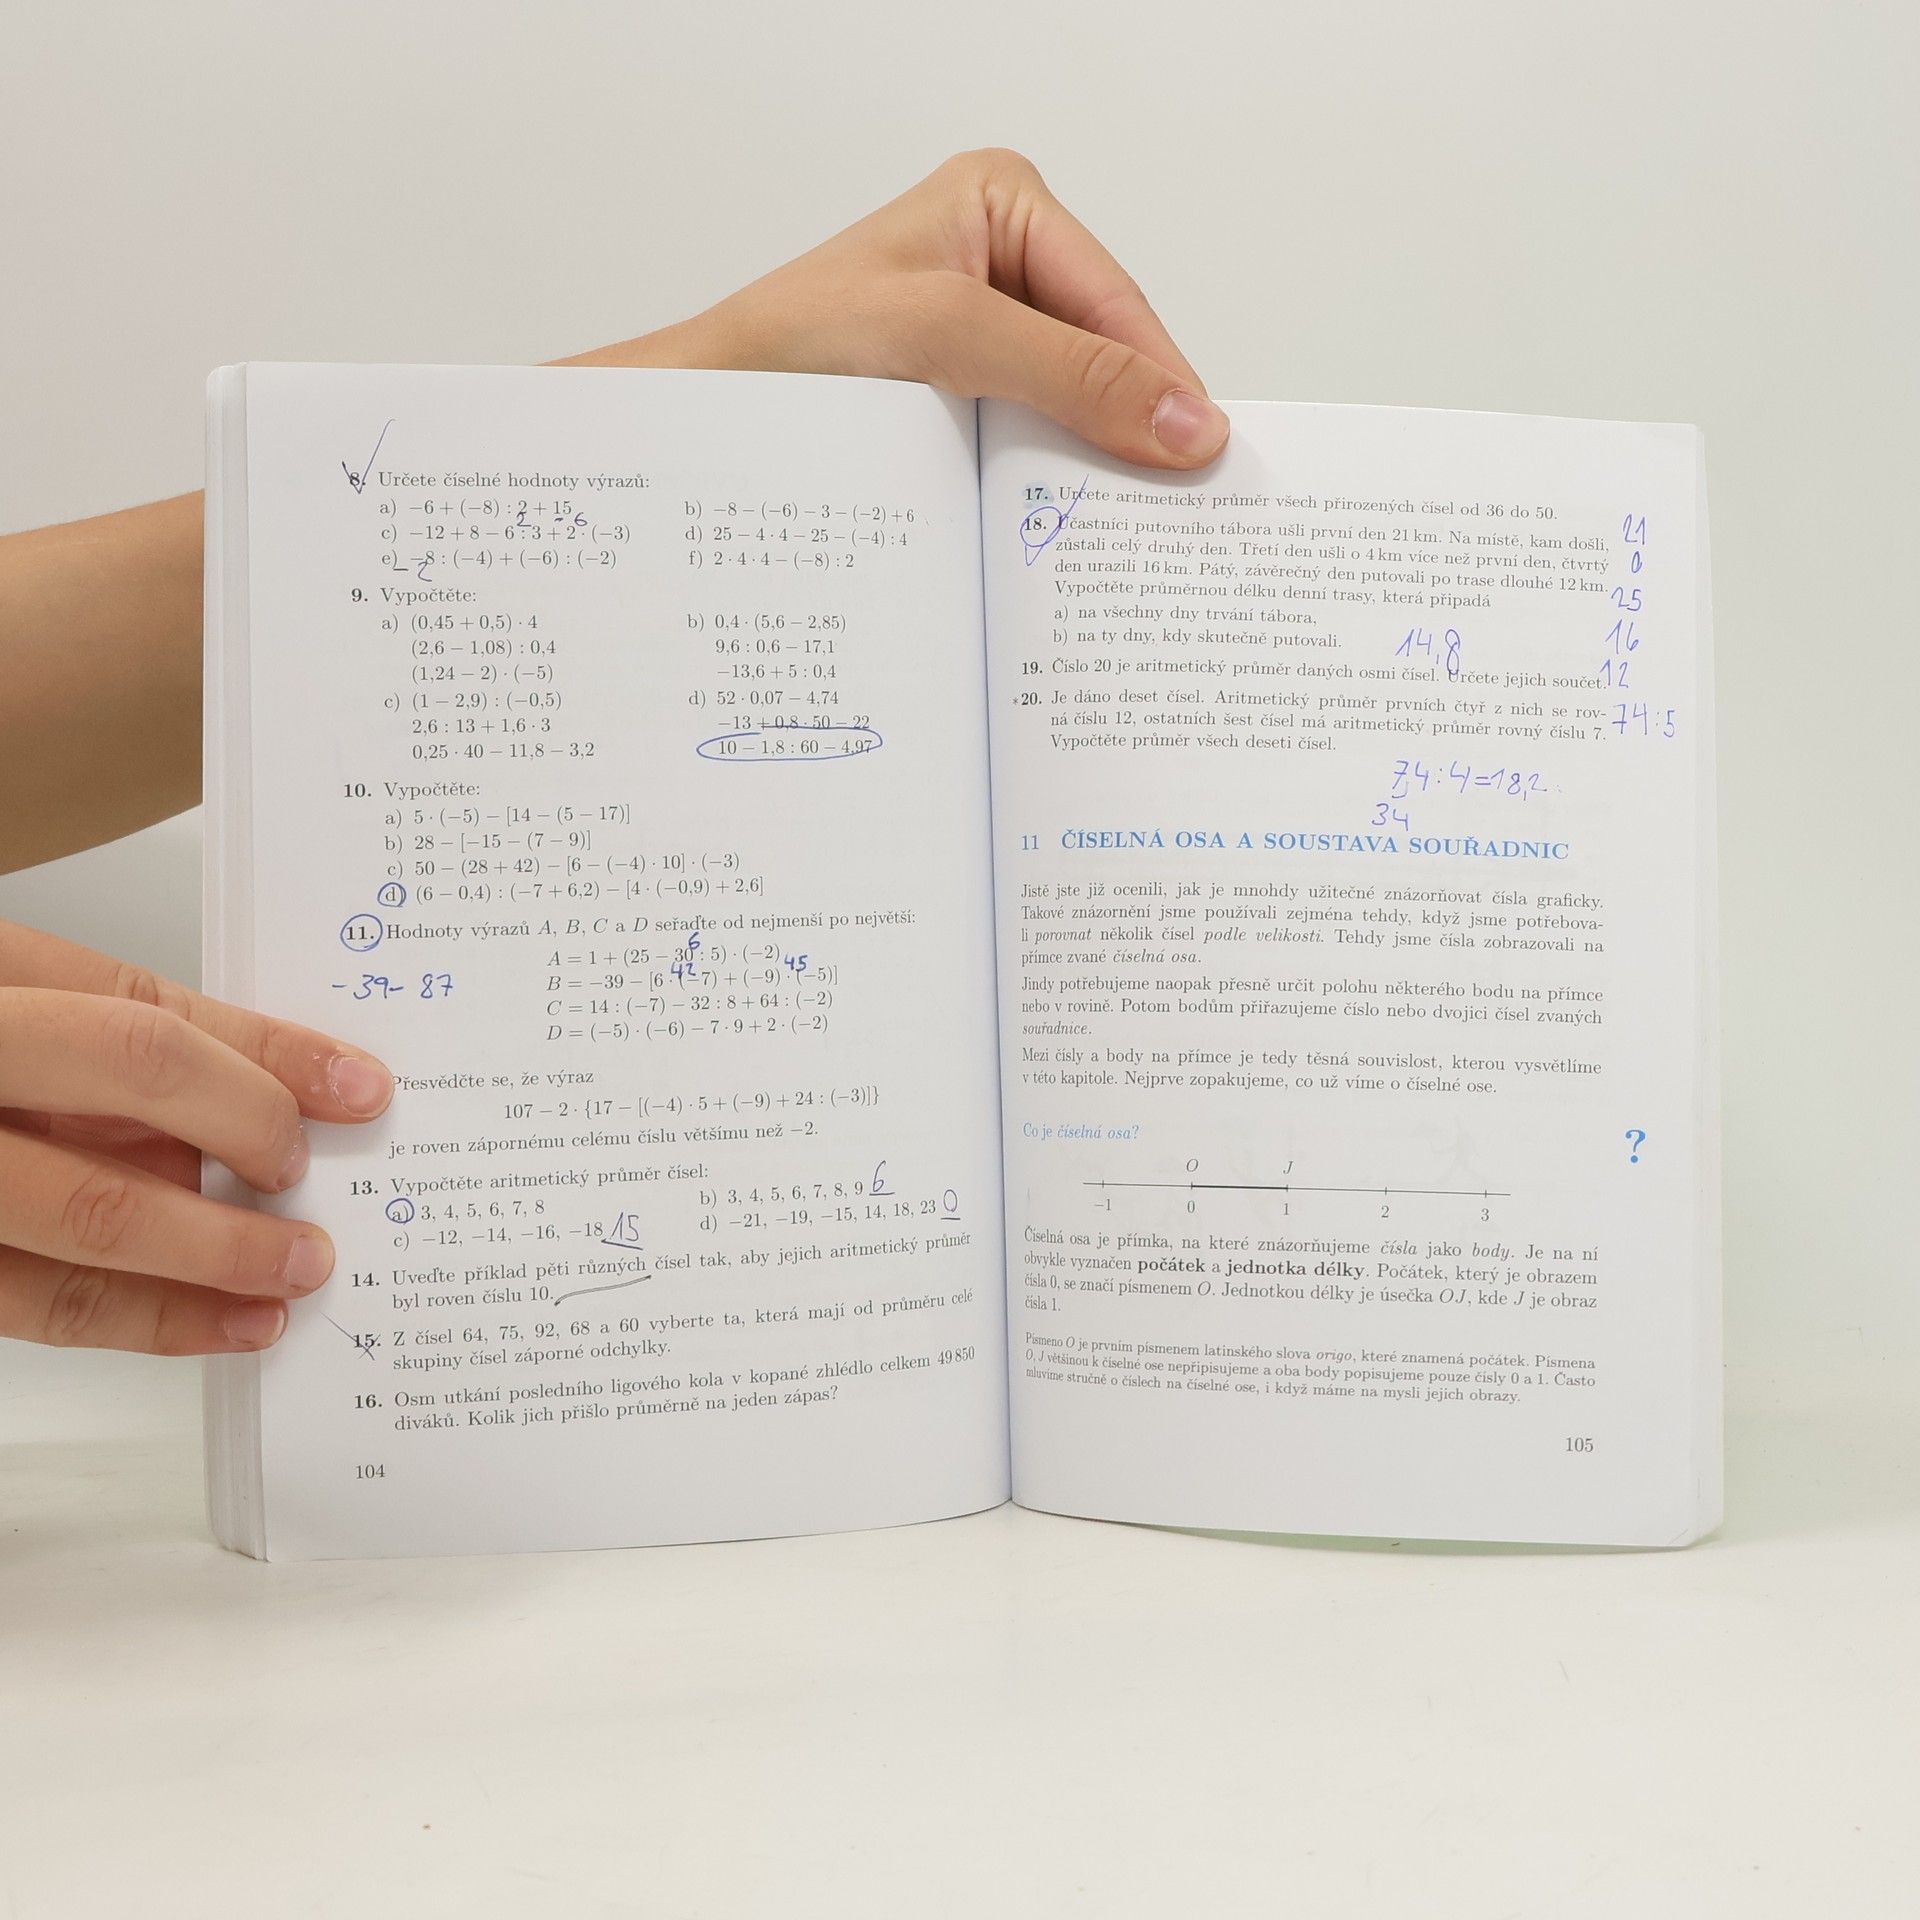 8. Určete číselné hodnoty výrazů:
a) −6 + (−8) : 2 + 15
b) −8 − (−6) − 3 − (−2) + 6
2 6
c) −12 + 8 − 6 : 3 + 2 · (−3)
d) 25 − 4 · 4 − 25 − (−4) : 4
e) −8 : (−4) + (−6) : (−2)
f) 2 · 4 · 4 − (−8) : 2
2
9. Vypočtěte:
a) (0,45 + 0,5) · 4
(2,6 − 1,08) : 0,4
(1,24 − 2) · (−5)
b) 0,4 · (5,6 − 2,85)
9,6 : 0,6 − 17,1
−13,6 + 5 : 0,4
c) (1 − 2,9) : (−0,5)
2,6 : 13 + 1,6 · 3
0,25 · 40 − 11,8 − 3,2
d) 52 · 0,07 − 4,74
−13 + 0,8 · 50 − 22
10 − 1,8 : 60 − 4,97
10. Vypočtěte:
a) 5 · (−5) − [14 − (5 − 17)]
b) 28 − [−15 − (7 − 9)]
c) 50 − (28 + 42) − [6 − (−4) · 10] · (−3)
d) (6 − 0,4) : (−7 + 6,2) − [4 · (−0,9) + 2,6]
11. Hodnoty výrazů A, B, C a D seřaďte od nejmenší po největší:
6
A = 1 + (25 − 30 : 5) · (−2)
42 45
B = −39 − [6 · (−7) + (−9) · (−5)]
−39− 87
C = 14 : (−7) − 32 : 8 + 64 : (−2)
D = (−5) · (−6) − 7 · 9 + 2 · (−2)
Přesvědčte se, že výraz
107 − 2 · {17 − [(−4) · 5 + (−9) + 24 : (−3)]}
je roven zápornému celému číslu většímu než −2.
13. Vypočtěte aritmetický průměr čísel:
a) 3, 4, 5, 6, 7, 8
b) 3, 4, 5, 6, 7, 8, 9 6
c) −12, −14, −16, −18 15
d) −21, −19, −15, 14, 18, 23 0
14. Uveďte příklad pěti různých čísel tak, aby jejich aritmetický průměr
byl roven číslu 10.
15. Z čísel 64, 75, 92, 68 a 60 vyberte ta, která mají od průměru celé
skupiny čísel záporné odchylky.
16. Osm utkání posledního ligového kola v kopané zhlédlo celkem 49 850
diváků. Kolik jich přišlo průměrně na jeden zápas?
104
17. Určete aritmetický průměr všech přirozených čísel od 36 do 50.
18. Účastníci putovního tábora ušli první den 21 km. Na místě, kam došli,
zůstali celý druhý den. Třetí den ušli o 4 km více než první den, čtvrtý
den urazili 16 km. Pátý, závěrečný den putovali po trase dlouhé 12 km.
Vypočtěte průměrnou délku denní trasy, která připadá
a) na všechny dny trvání tábora,
b) na ty dny, kdy skutečně putovali.
14,8
21
0
25
16
12
74:5
19. Číslo 20 je aritmetický průměr daných osmi čísel. Určete jejich součet.
*20. Je dáno deset čísel. Aritmetický průměr prvních čtyř z nich se rov-
ná číslu 12, ostatních šest čísel má aritmetický průměr rovný číslu 7.
Vypočtěte průměr všech deseti čísel.
74:4=18,2
34
11 ČÍSELNÁ OSA A SOUSTAVA SOUŘADNIC
Jistě jste již ocenili, jak je mnohdy užitečné znázorňovat čísla graficky.
Takové znázornění jsme používali zejména tehdy, když jsme potřebova-
li porovnat několik čísel podle velikosti. Tehdy jsme čísla zobrazovali na
přímce zvané číselná osa.
Jindy potřebujeme naopak přesně určit polohu některého bodu na přímce
nebo v rovině. Potom bodům přiřazujeme číslo nebo dvojici čísel zvaných
souřadnice.
Mezi čísly a body na přímce je tedy těsná souvislost, kterou vysvětlíme
v této kapitole. Nejprve zopakujeme, co už víme o číselné ose.
Co je číselná osa?
?
O J
−1 0 1 2 3
Číselná osa je přímka, na které znázorňujeme čísla jako body. Je na ní
obvykle vyznačen počátek a jednotka délky. Počátek, který je obrazem
čísla 0, se značí písmenem O. Jednotkou délky je úsečka OJ, kde J je obraz
čísla 1.
Písmeno O je prvním písmenem latinského slova origo, které znamená počátek. Písmena
O, J většinou k číselné ose nepřipisujeme a oba body popisujeme pouze čísly 0 a 1. Často
mluvíme stručně o číslech na číselné ose, i když máme na mysli jejich obrazy.
105